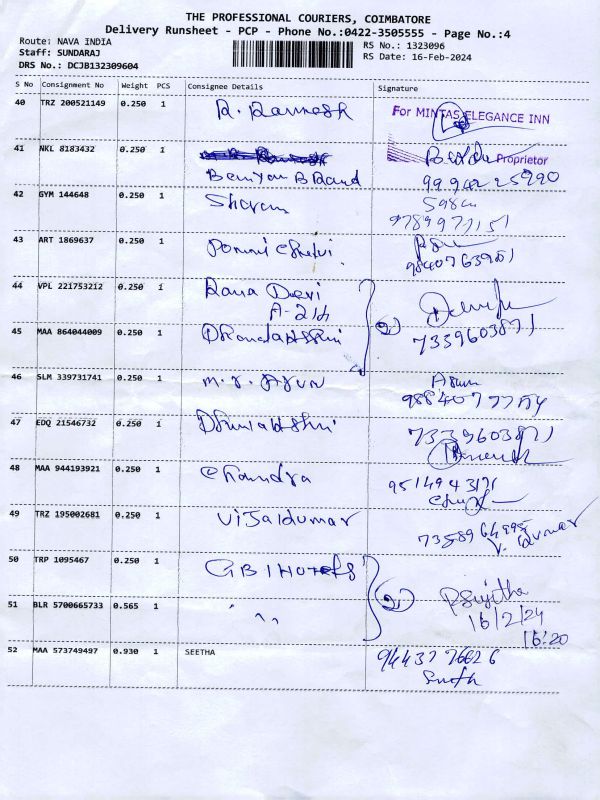 THE PROFESSIONAL COURIERS, COIMBATORE
Delivery Runsheet - PCP - Phone No.:0422-3505555 - Page No.:4
Route: NAVA INDIA
RS No.: 1323096
Staff: SUNDARAJ
RS Date: 16-Feb-2024
DRS No.: DCJB132309604
S No Consignment No Weight PCS Consignee Details Signature
40 TRZ 200521149 0.250 1 R. Ramesh
For MINTAS ELEGANCE INN
41 NKL 8183432 0.250 1
Proprietor
99942 25990
42 GYM 144648 0.250 1 Sharan
9789977151
43 ART 1869637 0.250 1 Ponni Chelvi
9840763951
44 VPL 221753212 0.250 1 Rama Devi
A-214
2
45 MAA 864044009 0.250 1
7339603871
46 SLM 339731741 0.250 1 M. S. Arun
Arun
47 EDQ 21546732 0.250 1
7339603871
48 MAA 944193921 0.250 1 Chandra
9514943171
49 TRZ 195002681 0.250 1 Vijaikumar
V. Kumar
50 TRP 1095467 0.250 1 GBI Hotels
2
R Sujitha
16/2/24
16:20
51 BLR 5700665733 0.565 1 " "
52 MAA 573749497 0.930 1 SEETHA
94437 76626